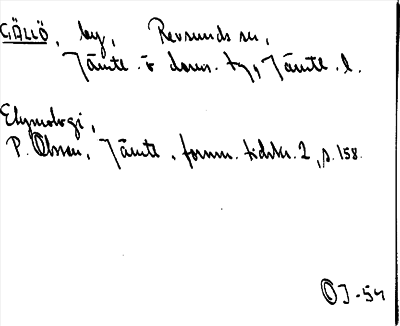 GÄLLÖ, by, Revsunds sn,
Jämtl. ö doms. ty, Jämtl. l.
Etymologi,
P. Olsson, Jämtl. fornm. tidskr. 2, s. 158.
OJ-54